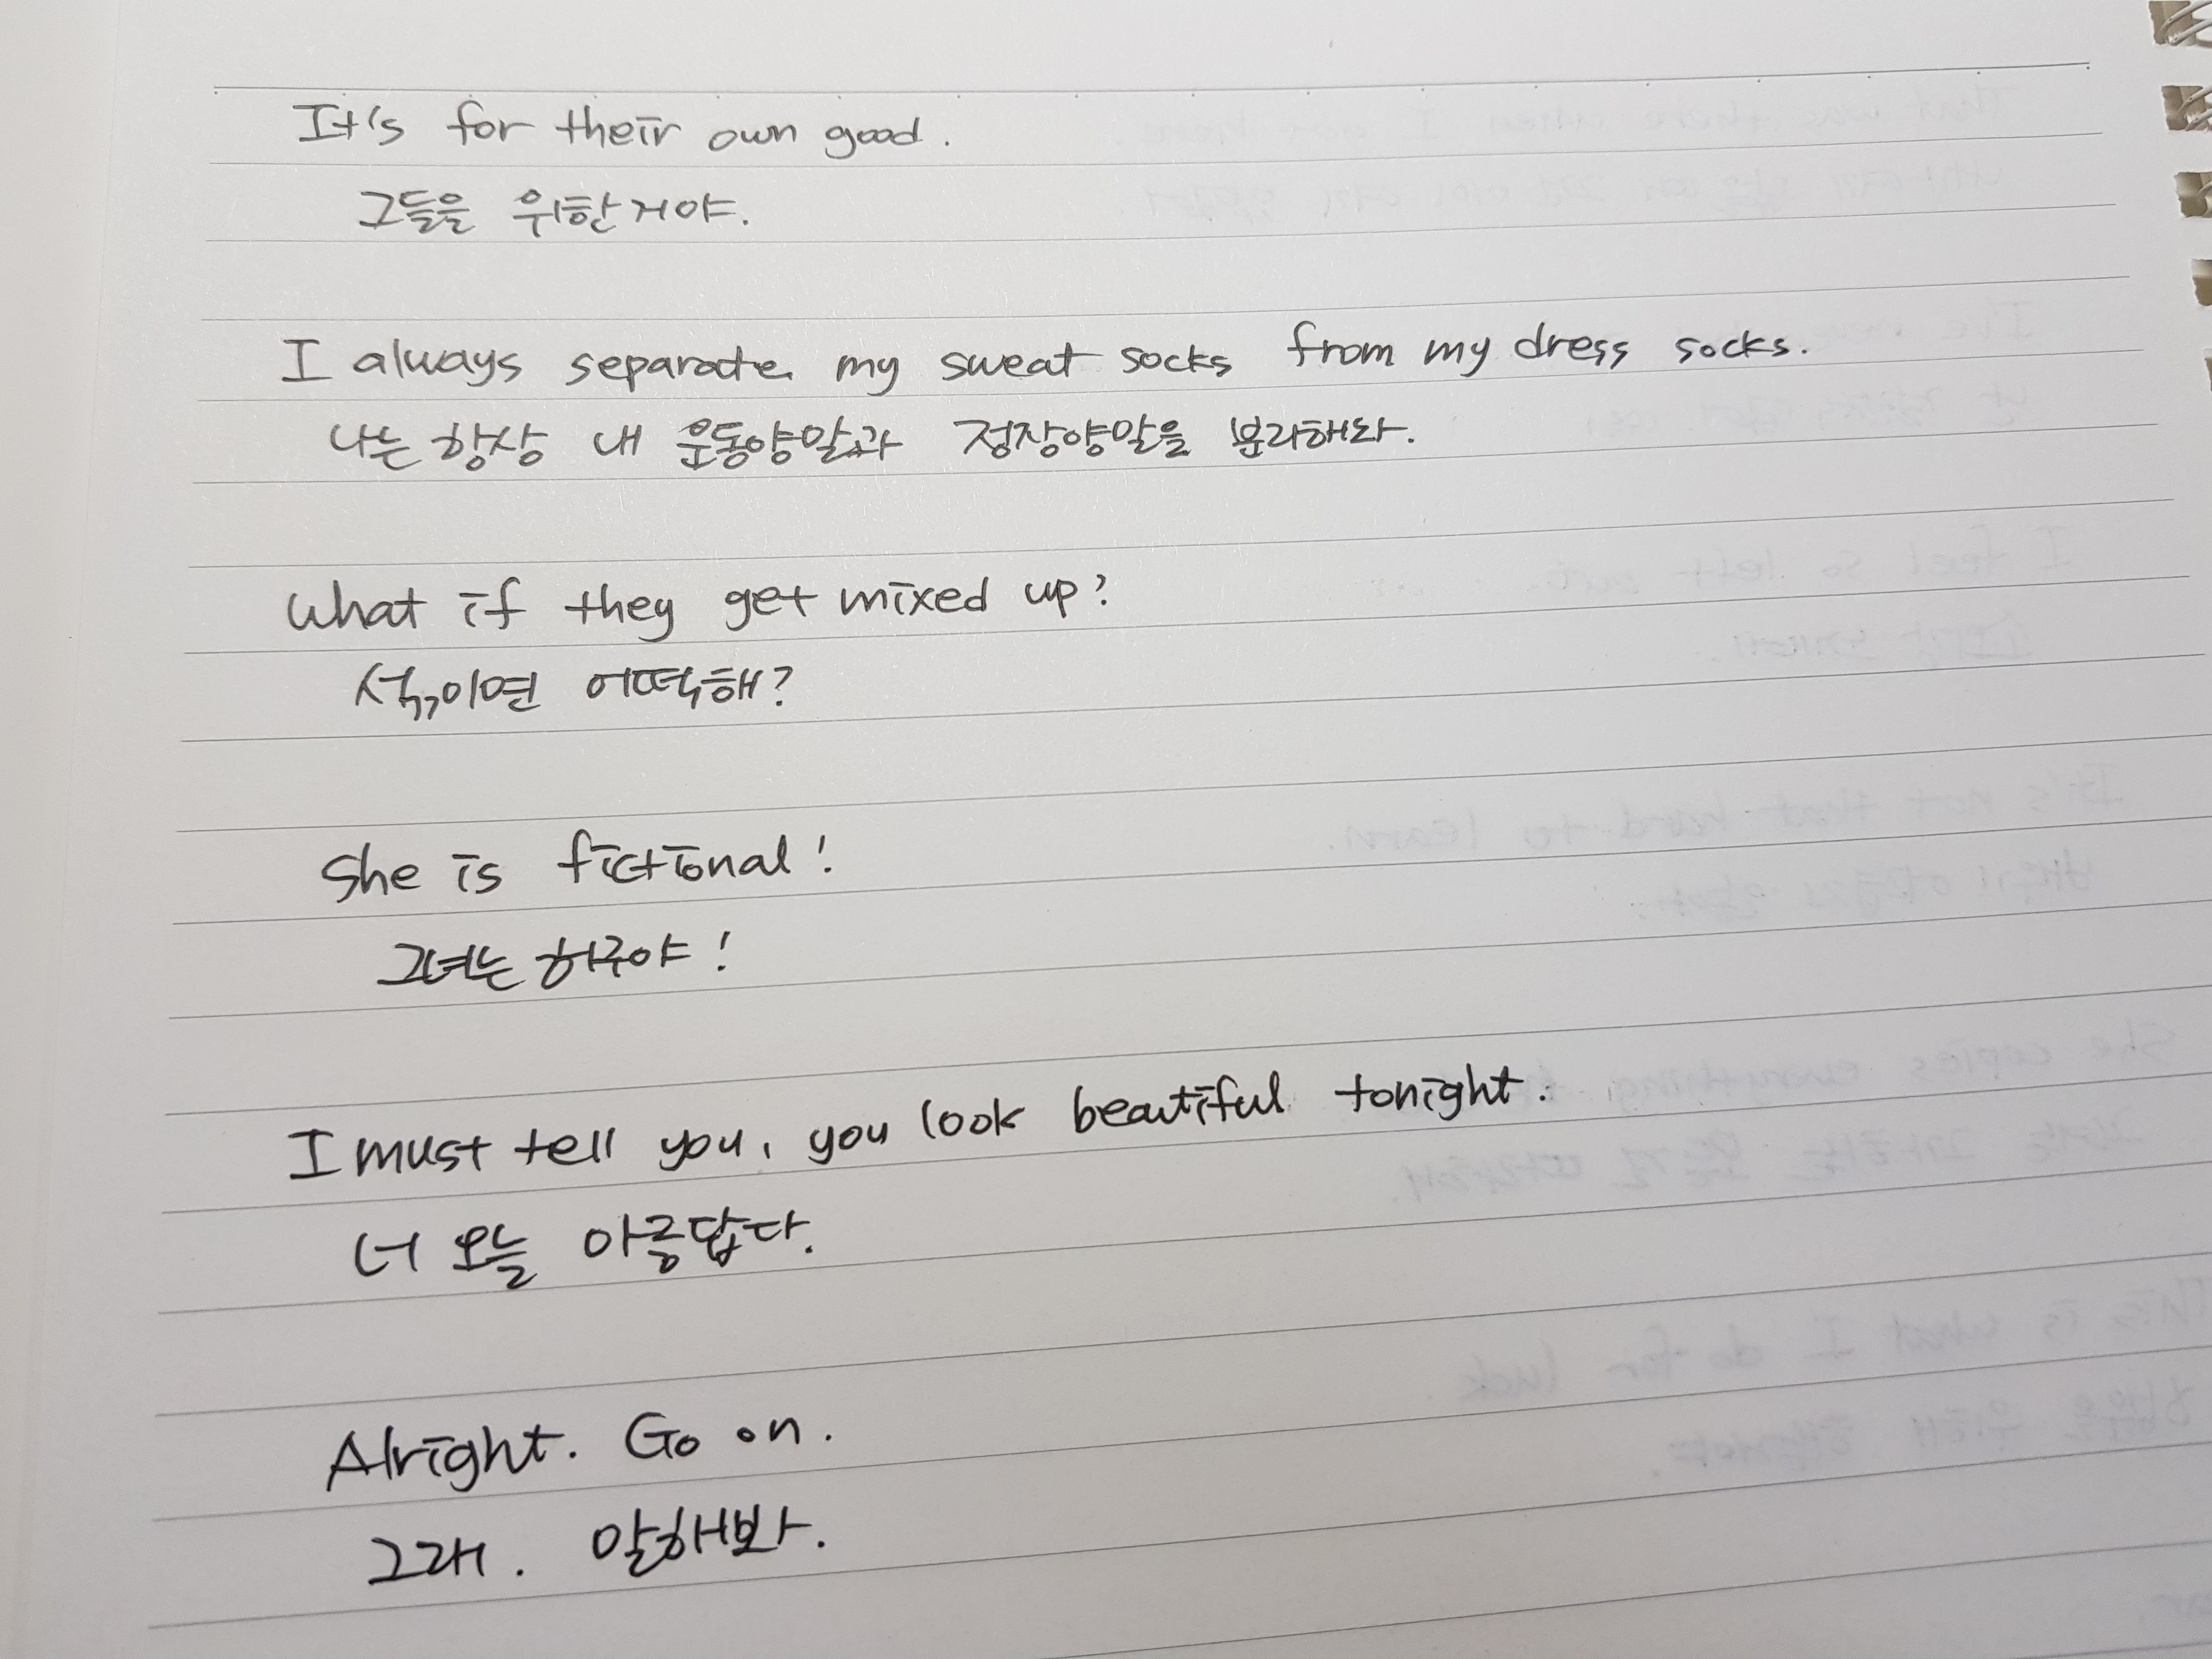 It's for their own good.
그들을 위한거야.
I always separate my sweat socks from my dress socks.
나는 항상 내 운동양말과 정장양말을 분리해놔.
What if they get mixed up?
섞이면 어떡해?
She is fictional!
그녀는 허구야!
I must tell you, you look beautiful tonight.
너 오늘 아름답다.
Alright. Go on.
그래. 말해봐.